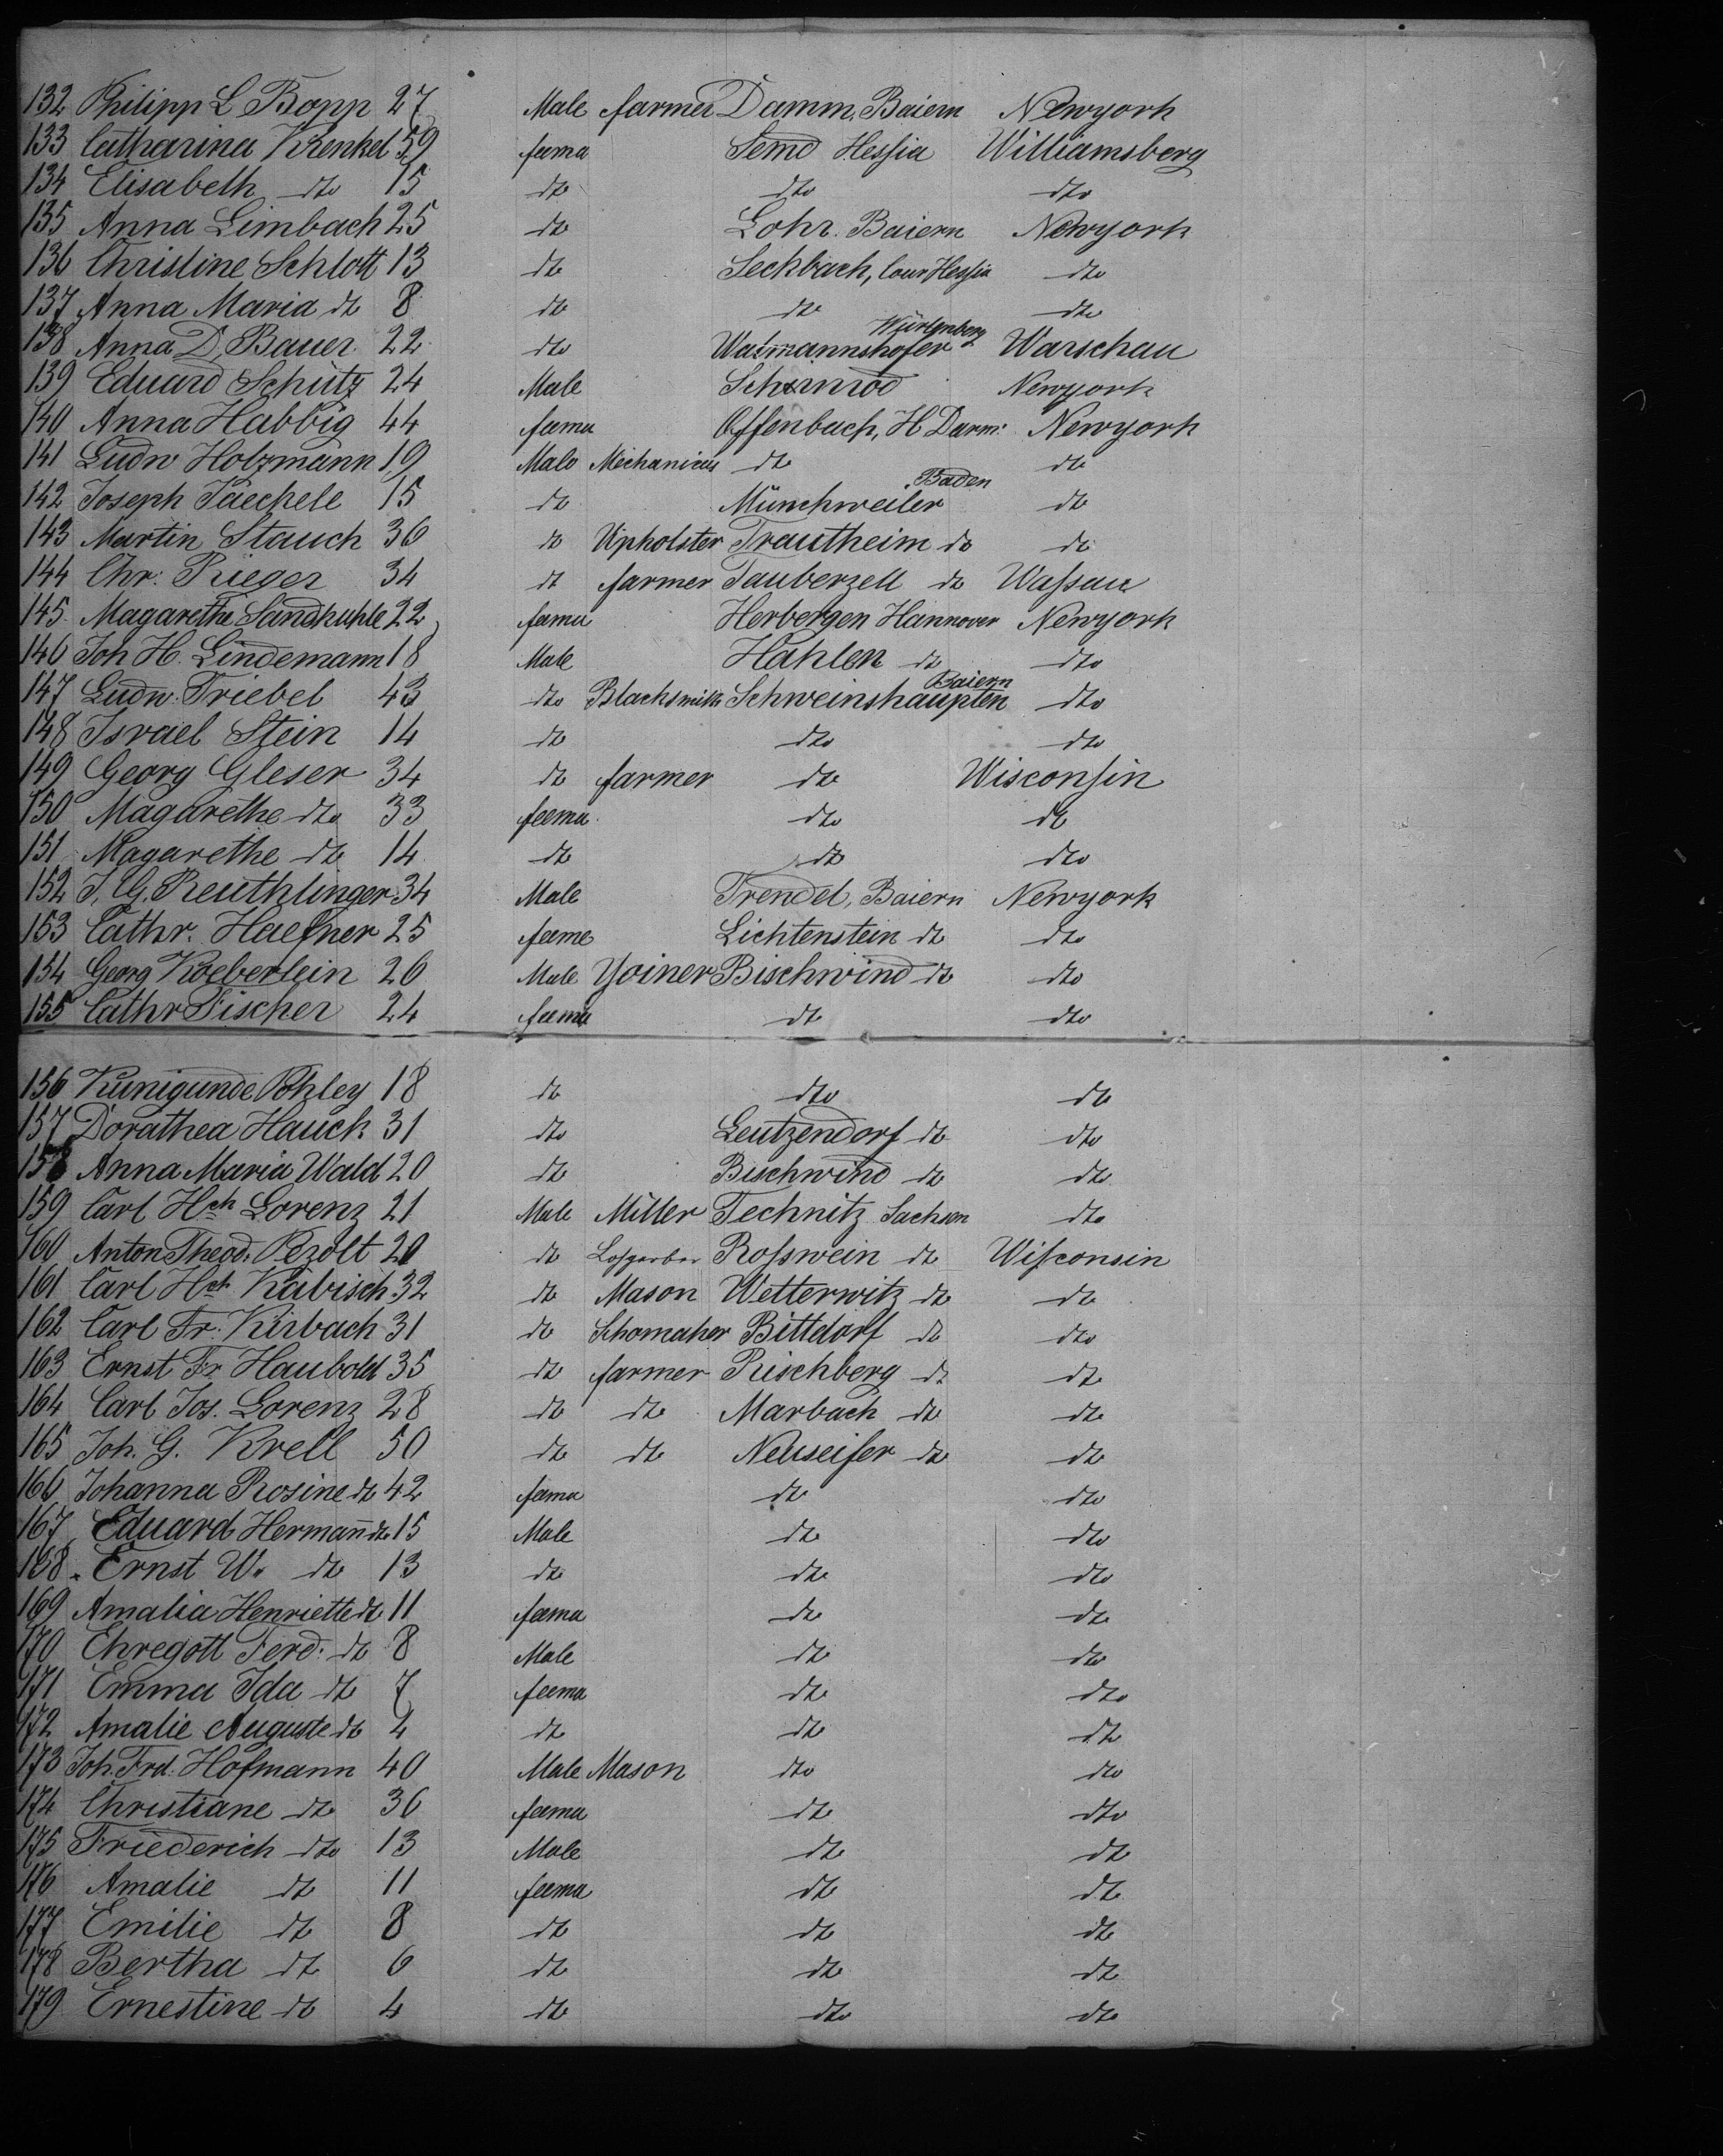 132 Philipp L Bopp 27 Male farmer Damm, Baiern Newyork
133 Catharina Krenkel 59 feema Semd Hessia Williamsberg
134 Elisabeth dto 15 dto dto dto
135 Anna Limbach 25 dto Lohr. Baiern Newyork
136 Christine Schlott 13 dto Seckbach, Cour Hessia dto
137 Anna Maria dto 8 dto dto dto
138 Anna D. Bauer 22 dto Watmannshofer Würtenberg Warschau
139 Eduard Schütz 24 Male Newyork
140 Anna Habbig 44 feema Offenbach, H Darm: Newyork
141 Ludw Holzmann 19 Male Mechanicus dto dto
142 Joseph Jaechele 15 do Münchweiler Baden dto
143 Martin Stauch 36 do Upholster Trautheim do do
144 Chr: Rieger 34 dt farmer Tauberzell dt Wassau
145 Magarethe Sandkuhle 22 feema Herbergen Hannover Newyork
146 Joh H. Lindemann 18 Male Hahlen dt dto
147 Ludw: Triebel 43 dto Blacksmith Schweinshaupten Baiern dto
148 Israel Stein 14 dt dto dto
149 Georg Gleser 34 dt farmer dt Wisconsin
150 Magarethe dto 33 feema dto dt
151 Magarethe dt 14 dt dt dto
152 J. G. Reuthlinger 34 Male Trendel, Baiern Newyork
153 Cathr. Haefner 25 feeme Lichtenstein dt dto
154 Georg Koeberlein 26 Male Yoiner Bischwind dt dto
155 Cathr Fischer 24 feema dt dto
156 Kunigunde Pohley 18 dt dto dt
157 Dorathea Hauck 31 dto Leutzendorf dt dto
158 Anna Maria Wald 20 dt Bischwind dt dto
159 Carl Hch Lorenz 21 Male Miller Technitz Sachsen dto
160 Anton Theod. Pezolt 20 dt Rosswein dt Wisconsin
161 Carl Hch Kabisch 32 dt Mason Wetterwitz dt dt
162 Carl Fr: Kirbach 31 dt Schomaker Bittdorf dt dto
163 Ernst Fr Haubold 35 dt farmer Rischberg dt dt
164 Carl Jos. Lorenz 28 dt dt Marbach dt dt
165 Joh. G. Krell 50 dt dt Neuseifer dt dt
166 Johanna Rosine dt 42 feema dt dto
167 Eduard Hermann̄ dt 15 Male dt dto
168. Ernst W. dt 13 dt dt dto
169 Amalia Henriette dt 11 feema dt dt
170 Ehregott Ferd: dt 8 Male dt dto
171 Emma Ida dt 7 feema dt dto
172 Amalie Auguste dt 4 dt dt dt
173 Joh. Frd. Hofmann 40 Male Mason dto dto
174 Christiane dt 36 feema dt dto
175 Friederich dto 13 Male dt dt
176 Amalie dt 11 feema dt dt
177 Emilie dt 8 dt dt dt
178 Bertha dt 6 dt dt dt
179 Ernestine dt 4 dt dto dto